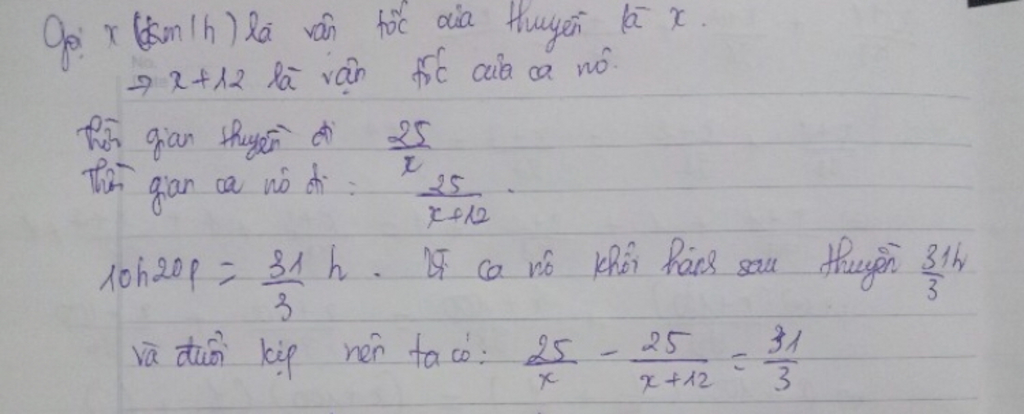 Gọi x (km/h) là vận tốc của thuyền là x.
⇒ x+12 là vận tốc của ca nô.
Thời gian thuyền đi 25/x
Thời gian ca nô đi: 25/(x+12).
10h20p = 31/3 h. Vì ca nô khởi hành sau thuyền 31h/3
và đuổi kịp nên ta có: 25/x - 25/(x+12) = 31/3